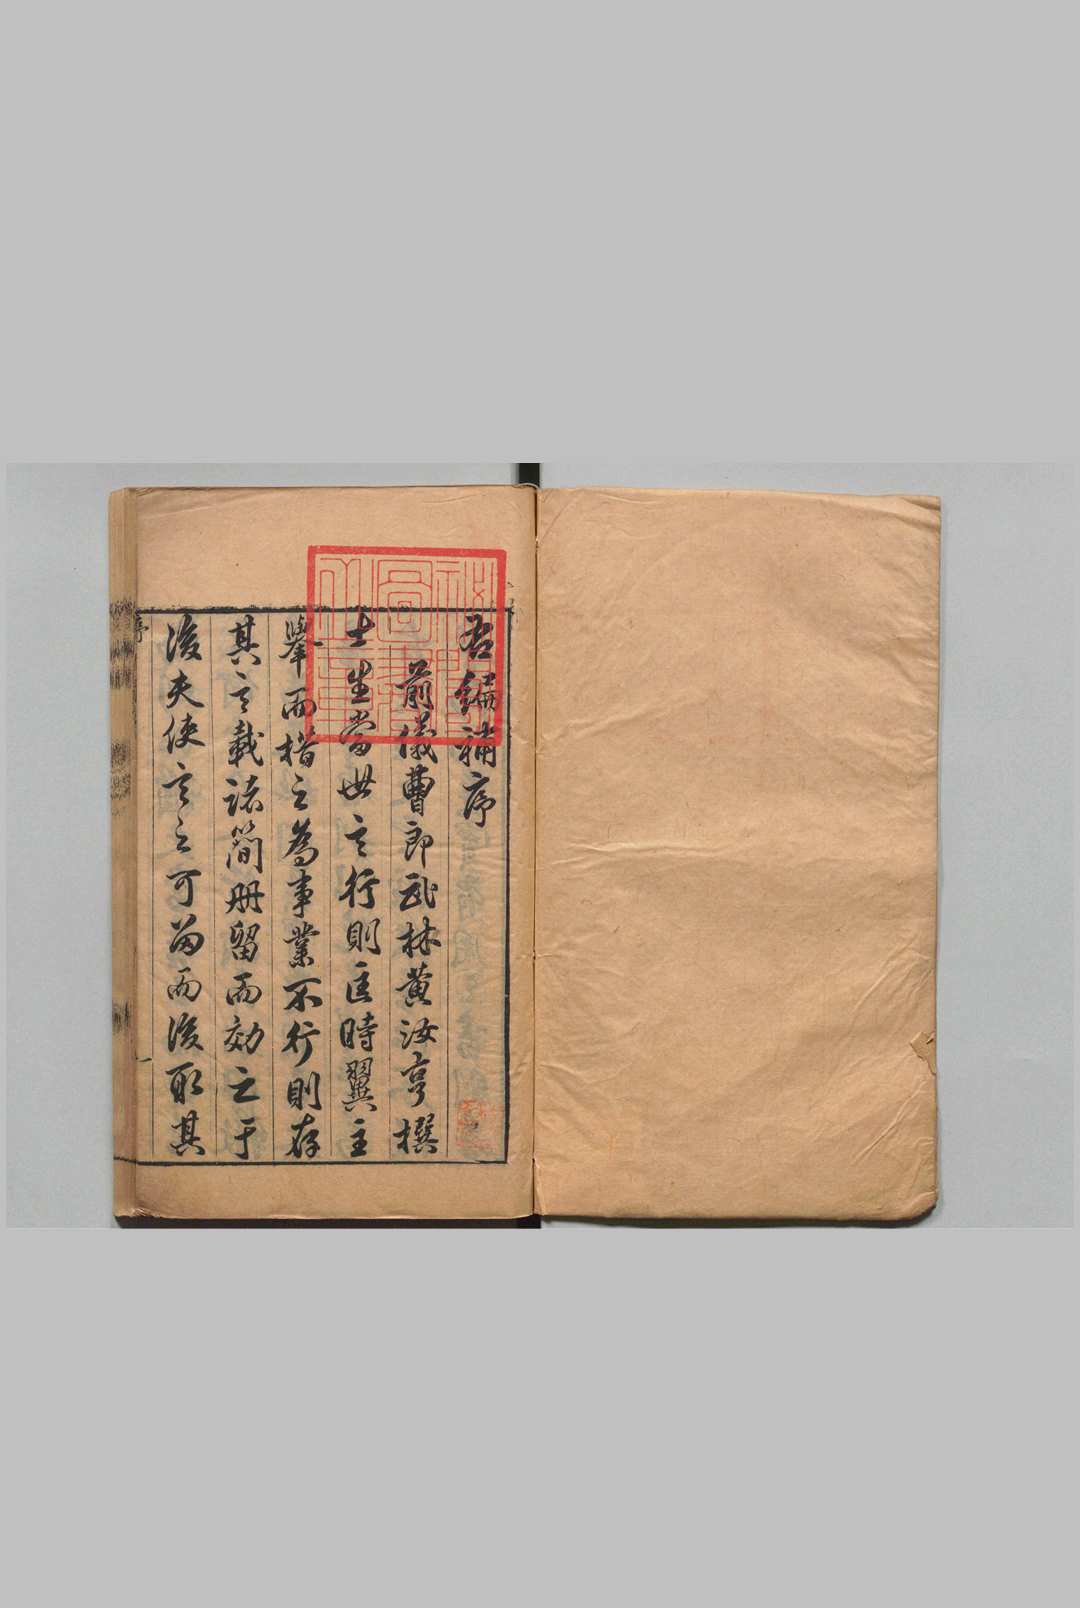 右編補序
前儀曹郎武林黄汝亨撰
士生當世言行則匡時翼主
舉而措之為事業不行則存
其言載諸簡冊留而効之于
後夫使言之可留而後取其
序
一
秘閣圖書之章